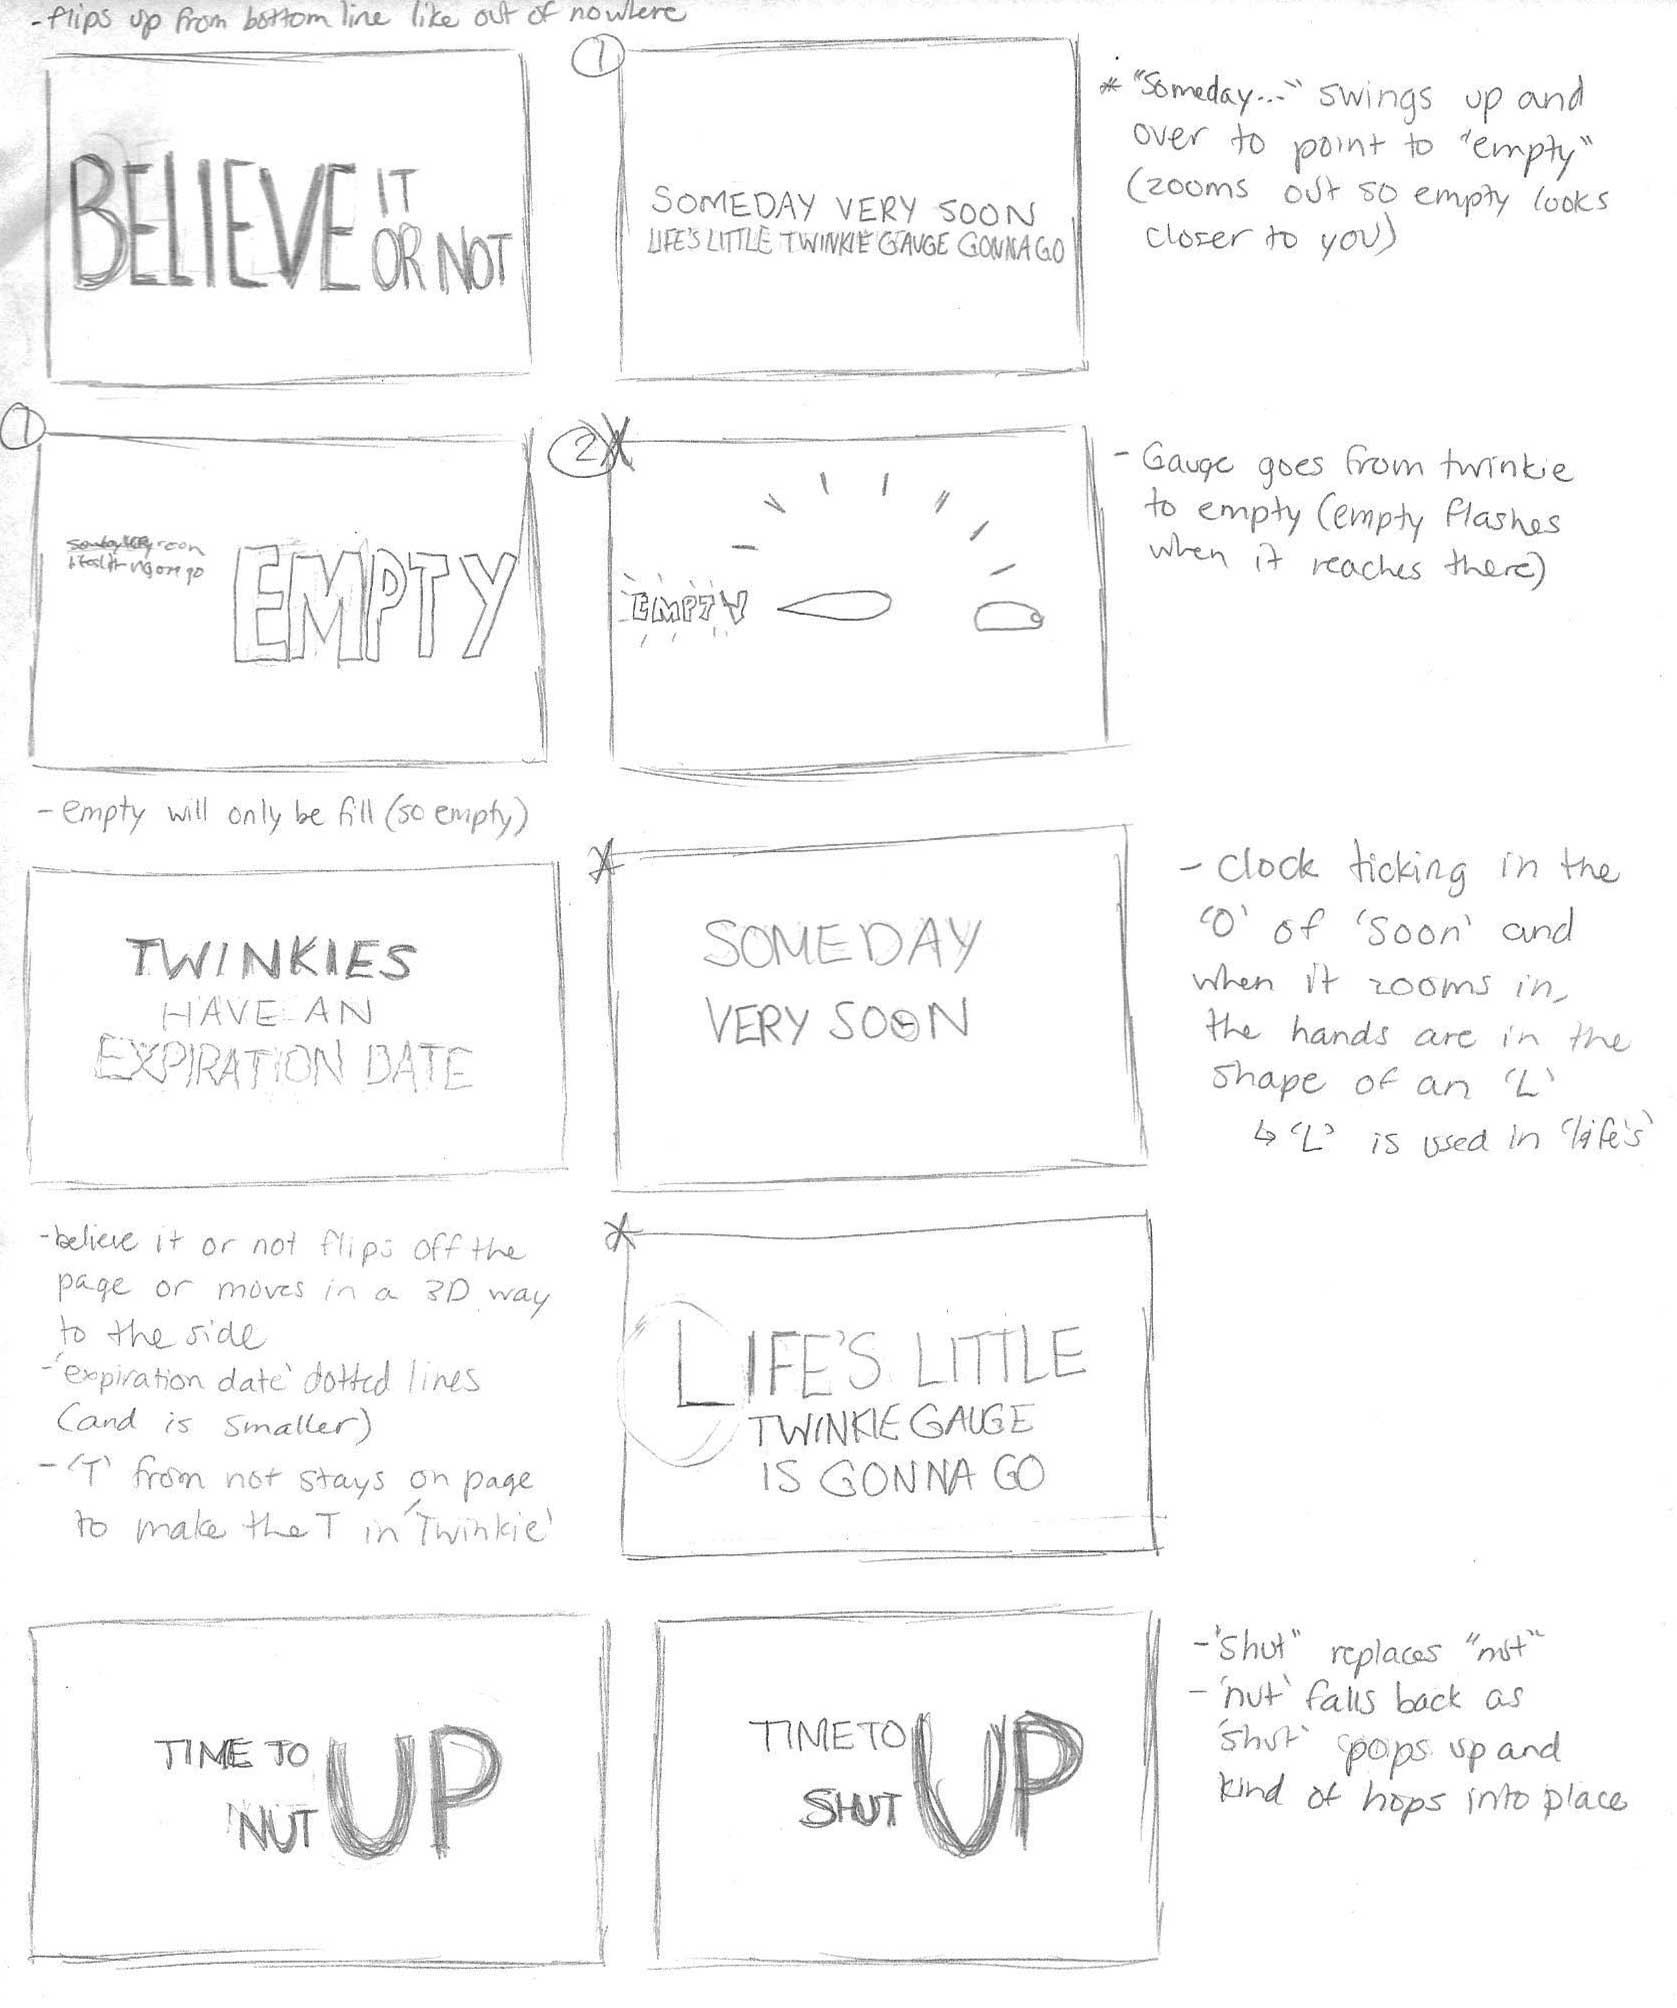 - flips up from bottom line like out of nowhere
BELIEVE IT
OR NOT
1
SOMEDAY VERY SOON
LIFE'S LITTLE TWINKIE GAUGE GONNA GO
* "Someday..." swings up and
over to point to "empty"
(zooms out so empty looks
closer to you)
1
soon
EMPTY
2
EMPTY
- Gauge goes from twinkie
to empty (empty flashes
when it reaches there)
- empty will only be fill (so empty)
TWINKIES
HAVE AN
EXPIRATION DATE
*
SOMEDAY
VERY SOON
- Clock ticking in the
'O' of 'Soon' and
when it zooms in,
the hands are in the
shape of an 'L'
↳ 'L' is used in 'life's'
- believe it or not flips off the
page or moves in a 3D way
to the side
- 'expiration date' dotted lines
(and is smaller)
- 'T' from not stays on page
to make the T in 'Twinkie'
*
LIFE'S LITTLE
TWINKIE GAUGE
IS GONNA GO
TIME TO
NUT UP
TIME TO
SHUT UP
- "Shut" replaces "nut"
- 'nut' falls back as
'shut' pops up and
kind of hops into place